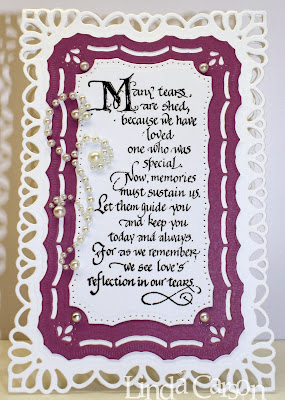 Many tears
are shed,
because we have
loved
one who was
special.
Now, memories
must sustain us.
Let them guide you
and keep you
today and always.
For as we remember,
we see love's
reflection in our tears.
Linda Carson